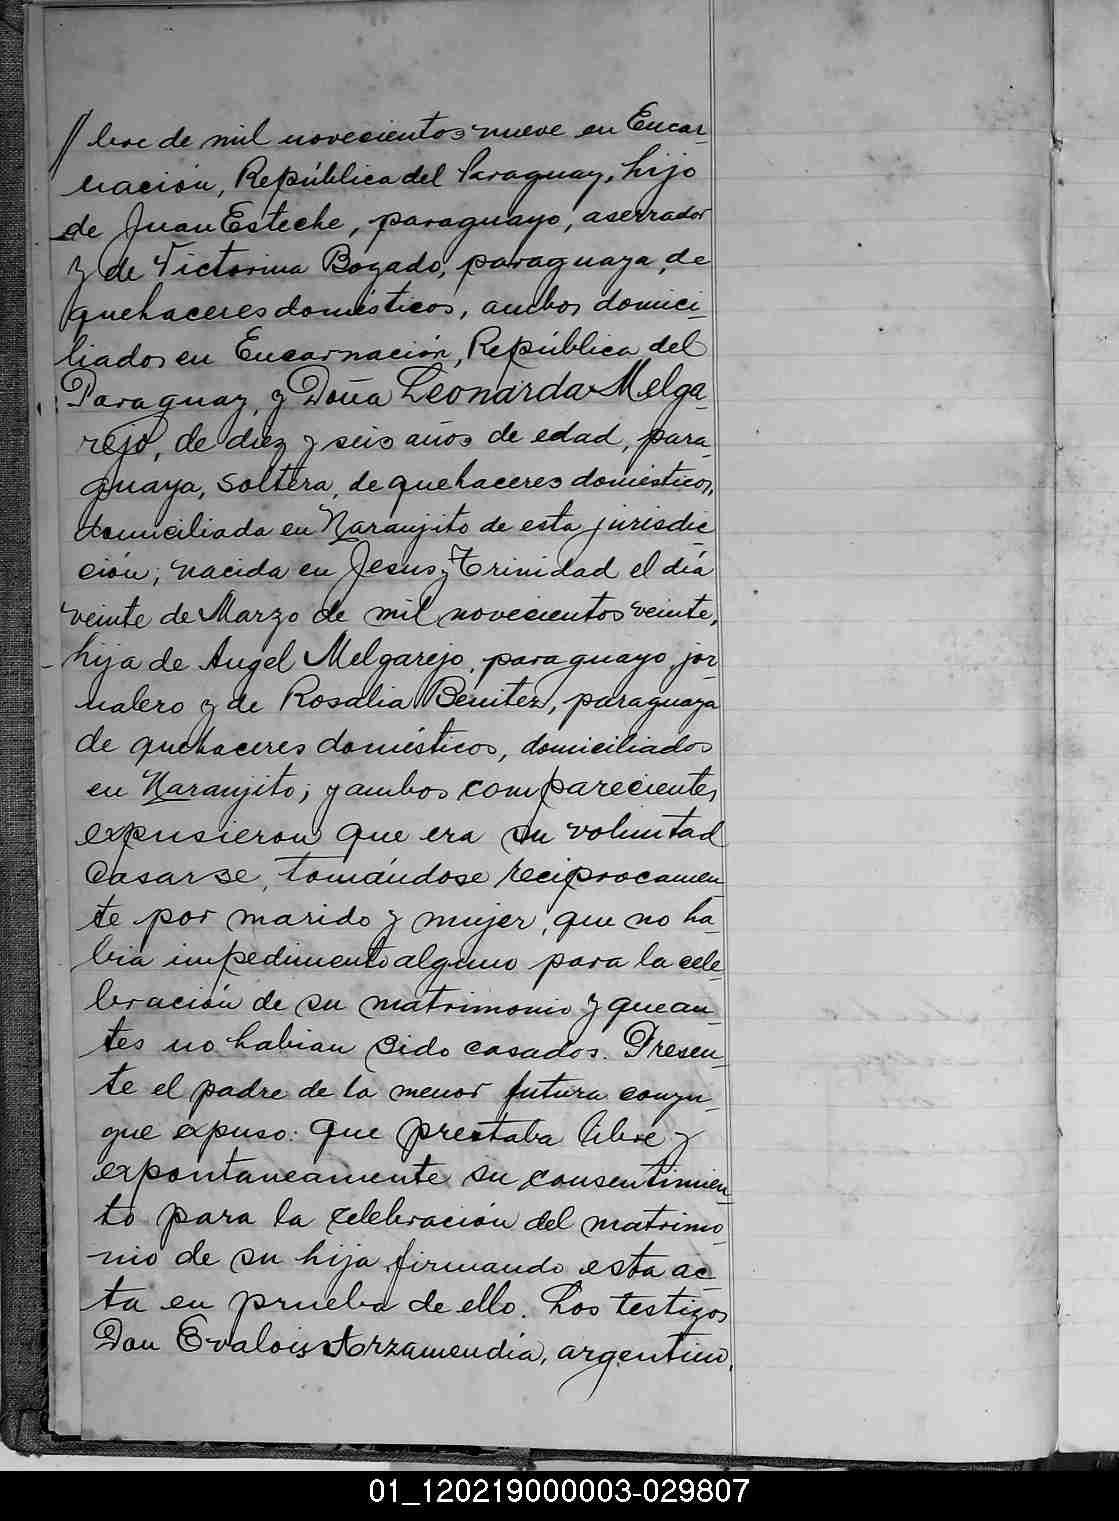 // bre de mil novecientos nueve en Encar-
nación, República del Paraguay, hijo
de Juan Esteche, paraguayo, aserrador
y de Victorina Bogado, paraguaya, de
quehaceres domésticos, ambos domici-
liados en Encarnación, República del
Paraguay, y Doña Leonarda Melga-
rejo, de diez y seis años de edad, para-
guaya, soltera, de quehaceres domésticos,
domiciliada en Naranjito de esta jurisdic
ción; nacida en Jesus y Trinidad el día
veinte de Marzo de mil novecientos veinte,
hija de Angel Melgarejo, paraguayo, jor-
nalero y de Rosalia Benitez, paraguaya
de quehaceres domésticos, domiciliados
en Naranjito; y ambos comparecientes
expusieron que era su voluntad
casarse, tomándose reciprocamen-
te por marido y mujer, que no ha-
bia impedimento alguno para la cele-
bración de su matrimonio y que an-
tes no habian sido casados. Presen-
te el padre de la menor futura conyu-
gue expuso: que prestaba libre y
expontaneamente su consentimien-
to para la celebración del matrimo-
nio de su hija firmando esta ac-
ta en prueba de ello. Los testigos
Don Evalois Arzamendia, argentino,
01_120219000003-029807